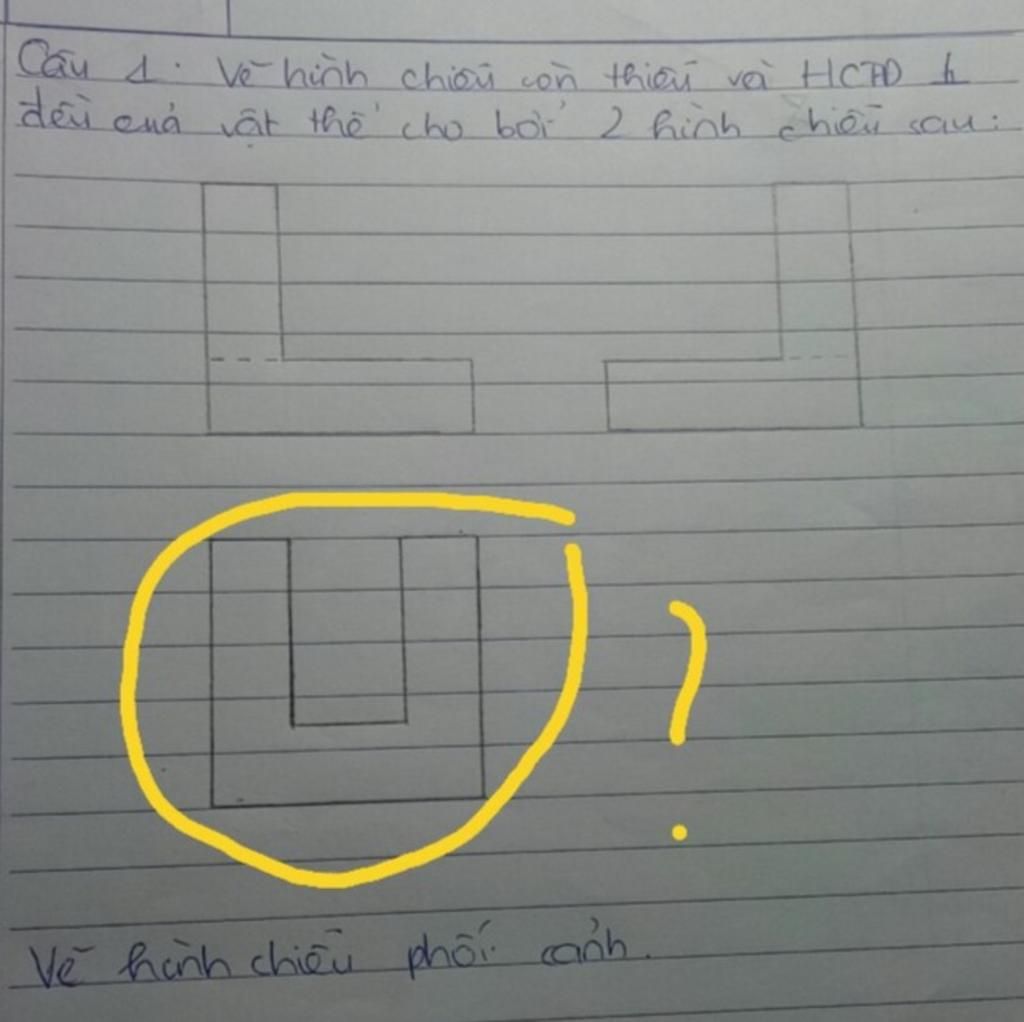 Câu 1: Vẽ hình chiếu còn thiếu và HCTĐ ⊥
đều của vật thể cho bởi 2 hình chiếu sau:
?
Vẽ hình chiếu phối cảnh.